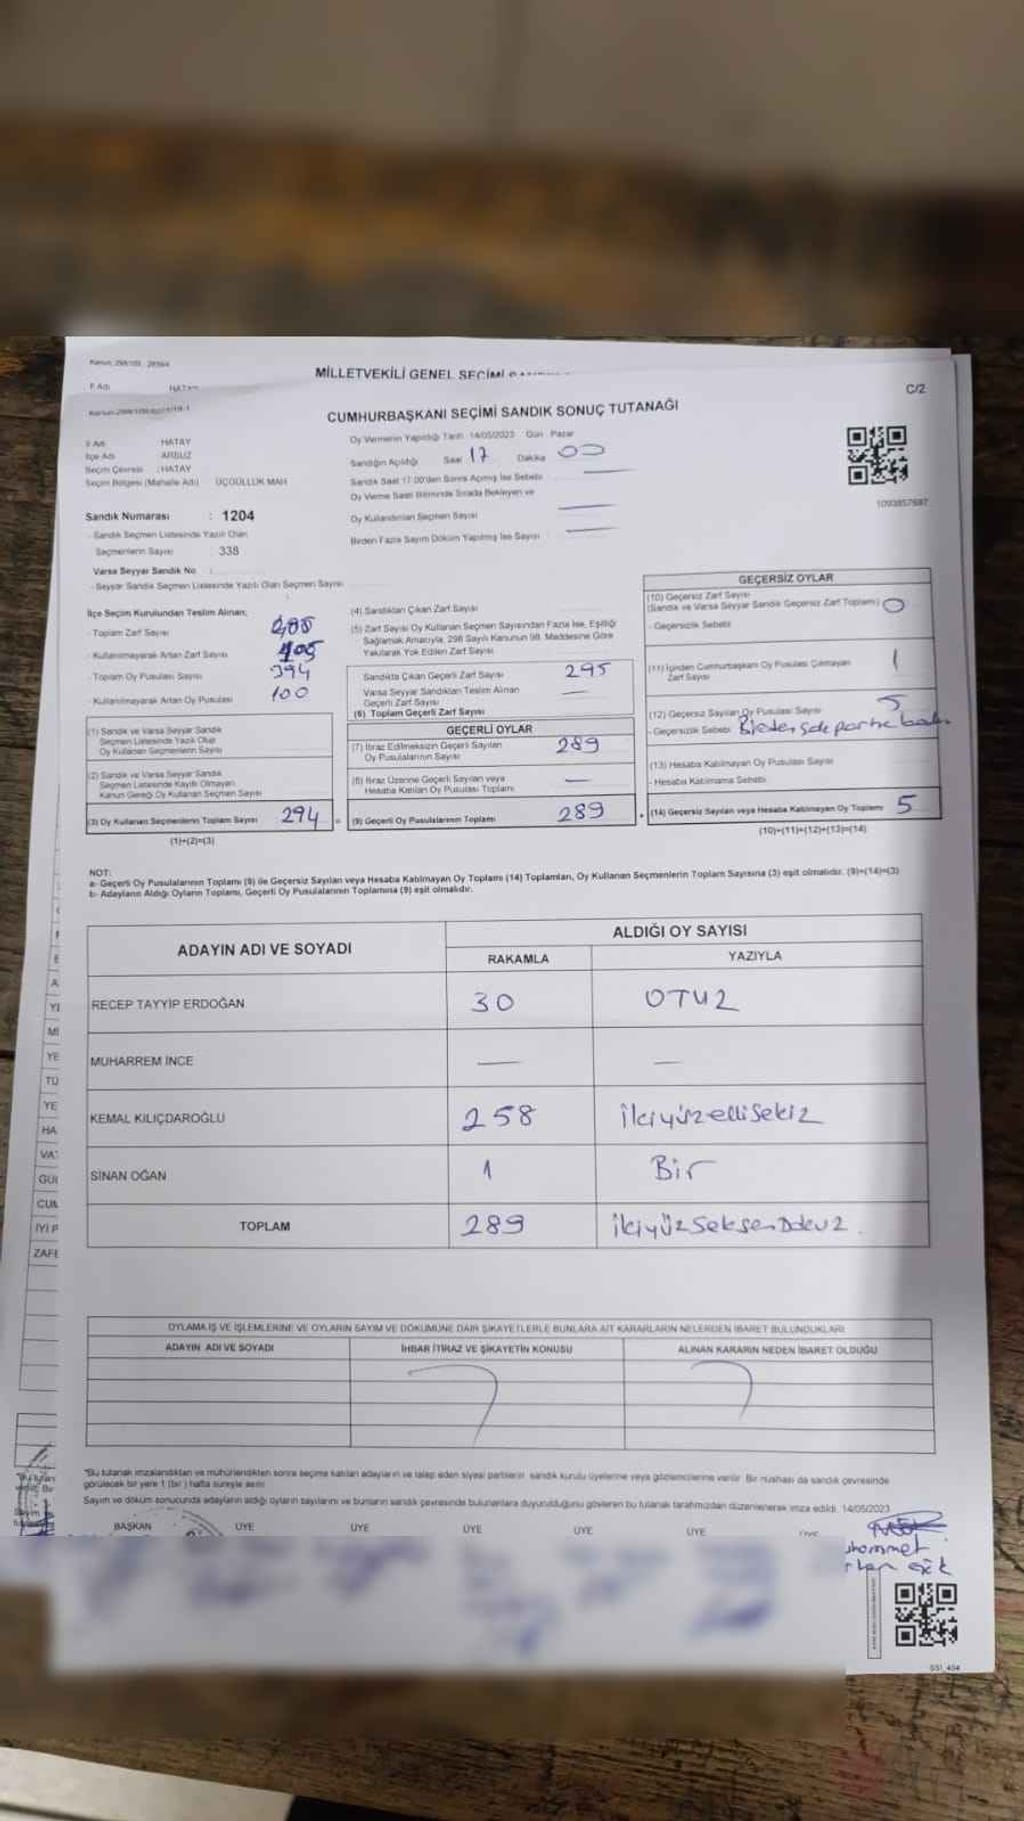 MİLLETVEKİLİ GENEL SEÇİMİ
İl Adı HATAY
C/2
CUMHURBAŞKANI SEÇİMİ SANDIK SONUÇ TUTANAĞI
İl Adı : HATAY
İlçe Adı : ARSUZ
Seçim Çevresi : HATAY
Seçim Bölgesi (Mahalle Adı) : ÜÇGÜLLÜK MAH
Sandık Numarası : 1204
- Sandık Seçmen Listesinde Yazılı Olan
Seçmenlerin Sayısı : 338
Varsa Seyyar Sandık No :
- Seyyar Sandık Seçmen Listesinde Yazılı Olan Seçmen Sayısı
Oy Vermenin Yapıldığı Tarih : 14/05/2023 Gün : Pazar
Sandığın Açıldığı Saat 17 Dakika 00
Sandık Saat 17:00'den Sonra Açılmış İse Sebebi
Oy Verme Saati Bitiminde Sırada Bekleyen ve
Oy Kullandırılan Seçmen Sayısı
Birden Fazla Sayım Döküm Yapılmış İse Sayısı
1093857687
İlçe Seçim Kurulundan Teslim Alınan;
- Toplam Zarf Sayısı
- Kullanılmayarak Artan Zarf Sayısı
- Toplam Oy Pusulası Sayısı 394
- Kullanılmayarak Artan Oy Pusulası 100
(1) Sandık ve Varsa Seyyar Sandık
Seçmen Listesinde Yazılı Olup
Oy Kullanan Seçmenlerin Sayısı
(2) Sandık ve Varsa Seyyar Sandık
Seçmen Listesinde Kayıtlı Olmayan
Kanun Gereği Oy Kullanan Seçmen Sayısı
(3) Oy Kullanan Seçmenlerin Toplam Sayısı 294
(1)+(2)=(3)
(4) Sandıktan Çıkan Zarf Sayısı
(5) Zarf Sayısı Oy Kullanan Seçmen Sayısından Fazla İse, Eşitliği
Sağlamak Amacıyla, 298 Sayılı Kanunun 98. Maddesine Göre
Yakılarak Yok Edilen Zarf Sayısı
Sandıkta Çıkan Geçerli Zarf Sayısı 295
Varsa Seyyar Sandıktan Teslim Alınan
Geçerli Zarf Sayısı
(6) Toplam Geçerli Zarf Sayısı
GEÇERLİ OYLAR
(7) İtiraz Edilmeksizin Geçerli Sayılan
Oy Pusulalarının Sayısı 289
(8) İtiraz Üzerine Geçerli Sayılan veya
Hesaba Katılan Oy Pusulası Toplamı
(9) Geçerli Oy Pusulalarının Toplamı 289
GEÇERSİZ OYLAR
(10) Geçersiz Zarf Sayısı
(Sandık ve Varsa Seyyar Sandık Geçersiz Zarf Toplamı) 0
- Geçersizlik Sebebi
(11) İçinden Cumhurbaşkanı Oy Pusulası Çıkmayan
Zarf Sayısı 1
(12) Geçersiz Sayılan Oy Pusulası Sayısı 5
- Geçersizlik Sebebi
(13) Hesaba Katılmayan Oy Pusulası Sayısı
- Hesaba Katılmama Sebebi
(14) Geçersiz Sayılan veya Hesaba Katılmayan Oy Toplamı 5
(10)+(11)+(12)+(13)=(14)
NOT:
a- Geçerli Oy Pusulalarının Toplamı (9) ile Geçersiz Sayılan veya Hesaba Katılmayan Oy Toplamı (14) Toplamları, Oy Kullanan Seçmenlerin Toplam Sayısına (3) eşit olmalıdır. (9)+(14)=(3)
b- Adayların Aldığı Oyların Toplamı, Geçerli Oy Pusulalarının Toplamına (9) eşit olmalıdır.
ADAYIN ADI VE SOYADI
ALDIĞI OY SAYISI
RAKAMLA YAZIYLA
RECEP TAYYİP ERDOĞAN 30 OTUZ
MUHARREM İNCE — —
KEMAL KILIÇDAROĞLU 258 ikiyüzellisekiz
SİNAN OĞAN 1 Bir
TOPLAM 289 ikiyüzseksendokuz
OYLAMA İŞ VE İŞLEMLERİNE VE OYLARIN SAYIM VE DÖKÜMÜNE DAİR ŞİKAYETLERLE BUNLARA AİT KARARLARIN NELERDEN İBARET BULUNDUKLARI
ADAYIN ADI VE SOYADI İHBAR İTİRAZ VE ŞİKAYETİN KONUSU ALINAN KARARIN NEDEN İBARET OLDUĞU
*Bu tutanak imzalandıktan ve mühürlendikten sonra seçime katılan adayların ve talep eden siyasi partilerin sandık kurulu üyelerine veya gözlemcilerine verilir. Bir nüshası da sandık çevresinde
görülecek bir yere 1 (bir) hafta süreyle asılır.
Sayım ve döküm sonucunda adayların aldığı oyların sayılarını ve bunların sandık çevresinde bulunanlara duyurulduğunu gösteren bu tutanak tarafımızdan düzenlenerek imza edildi. 14/05/2023
BAŞKAN ÜYE ÜYE ÜYE ÜYE ÜYE